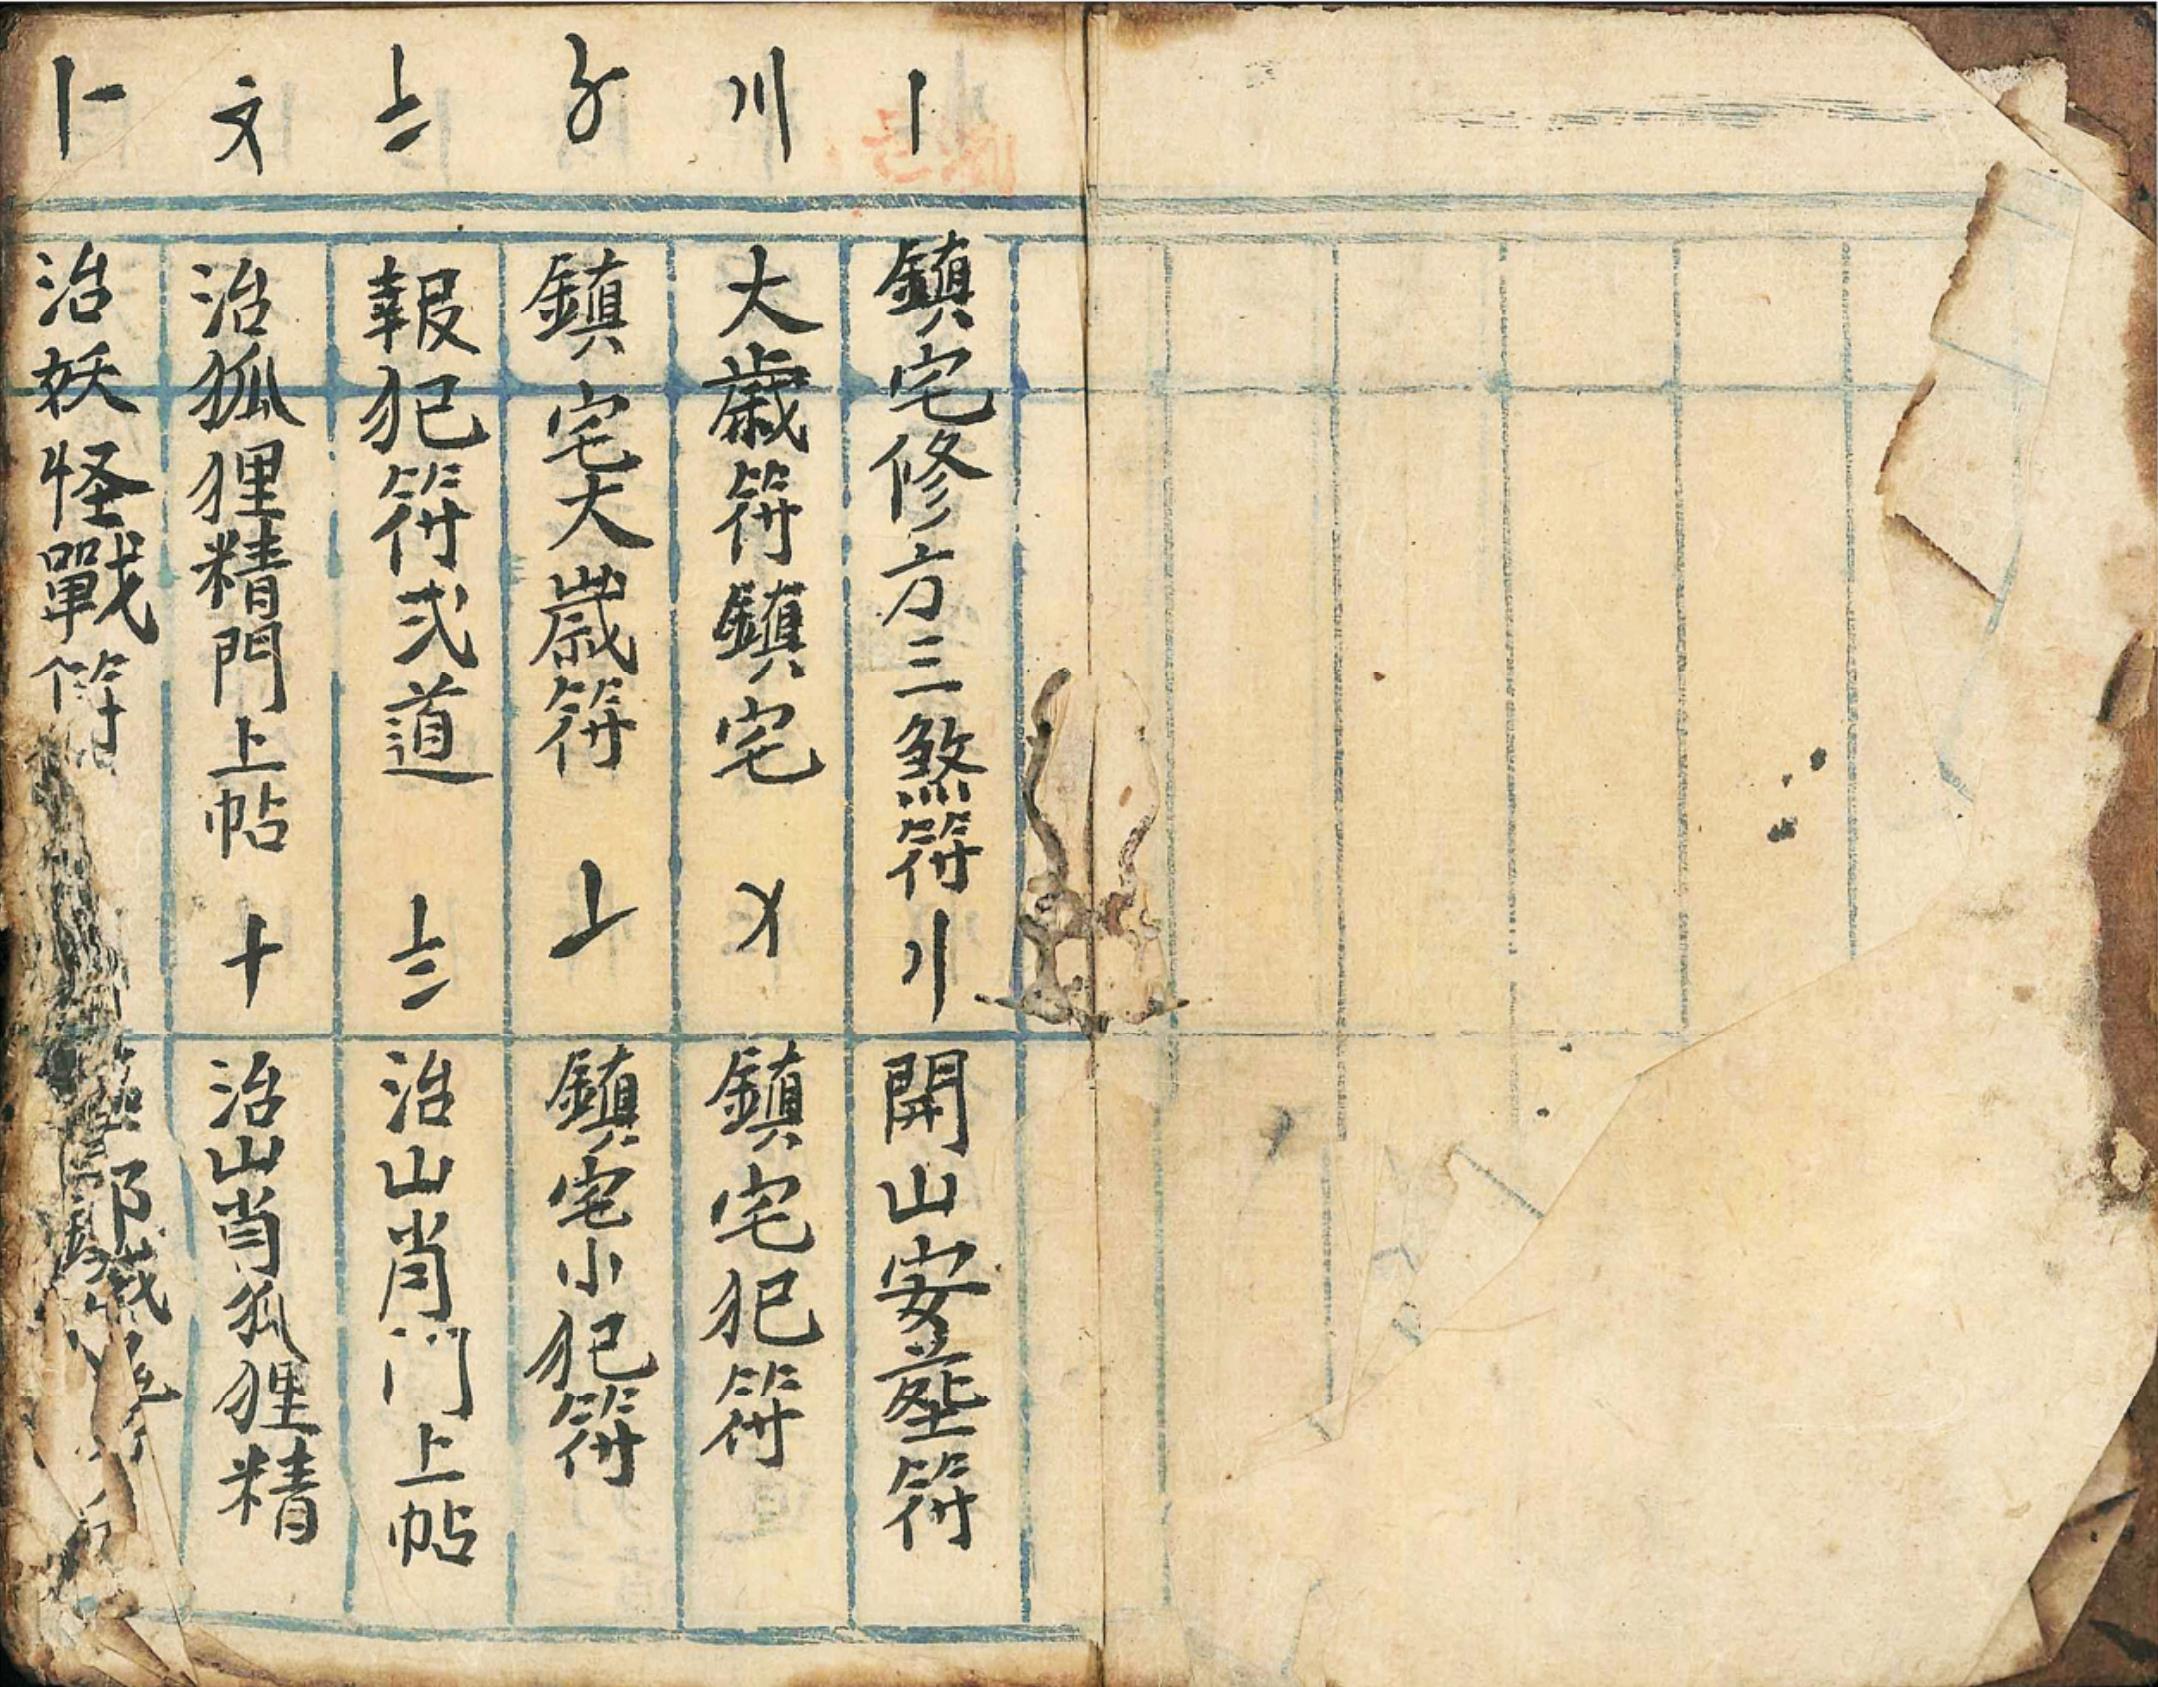 〡 鎮宅修方三煞符 〢 開山安塟符
〣 大歲符鎮宅 〤 鎮宅犯符
〥 鎮宅大歲符 〦 鎮宅小犯符
〧 報犯符弍道 〨 治山肖门上帖
〩 治狐狸精門上帖 十 治山肖狐狸精
〡一 治妖怪戰符